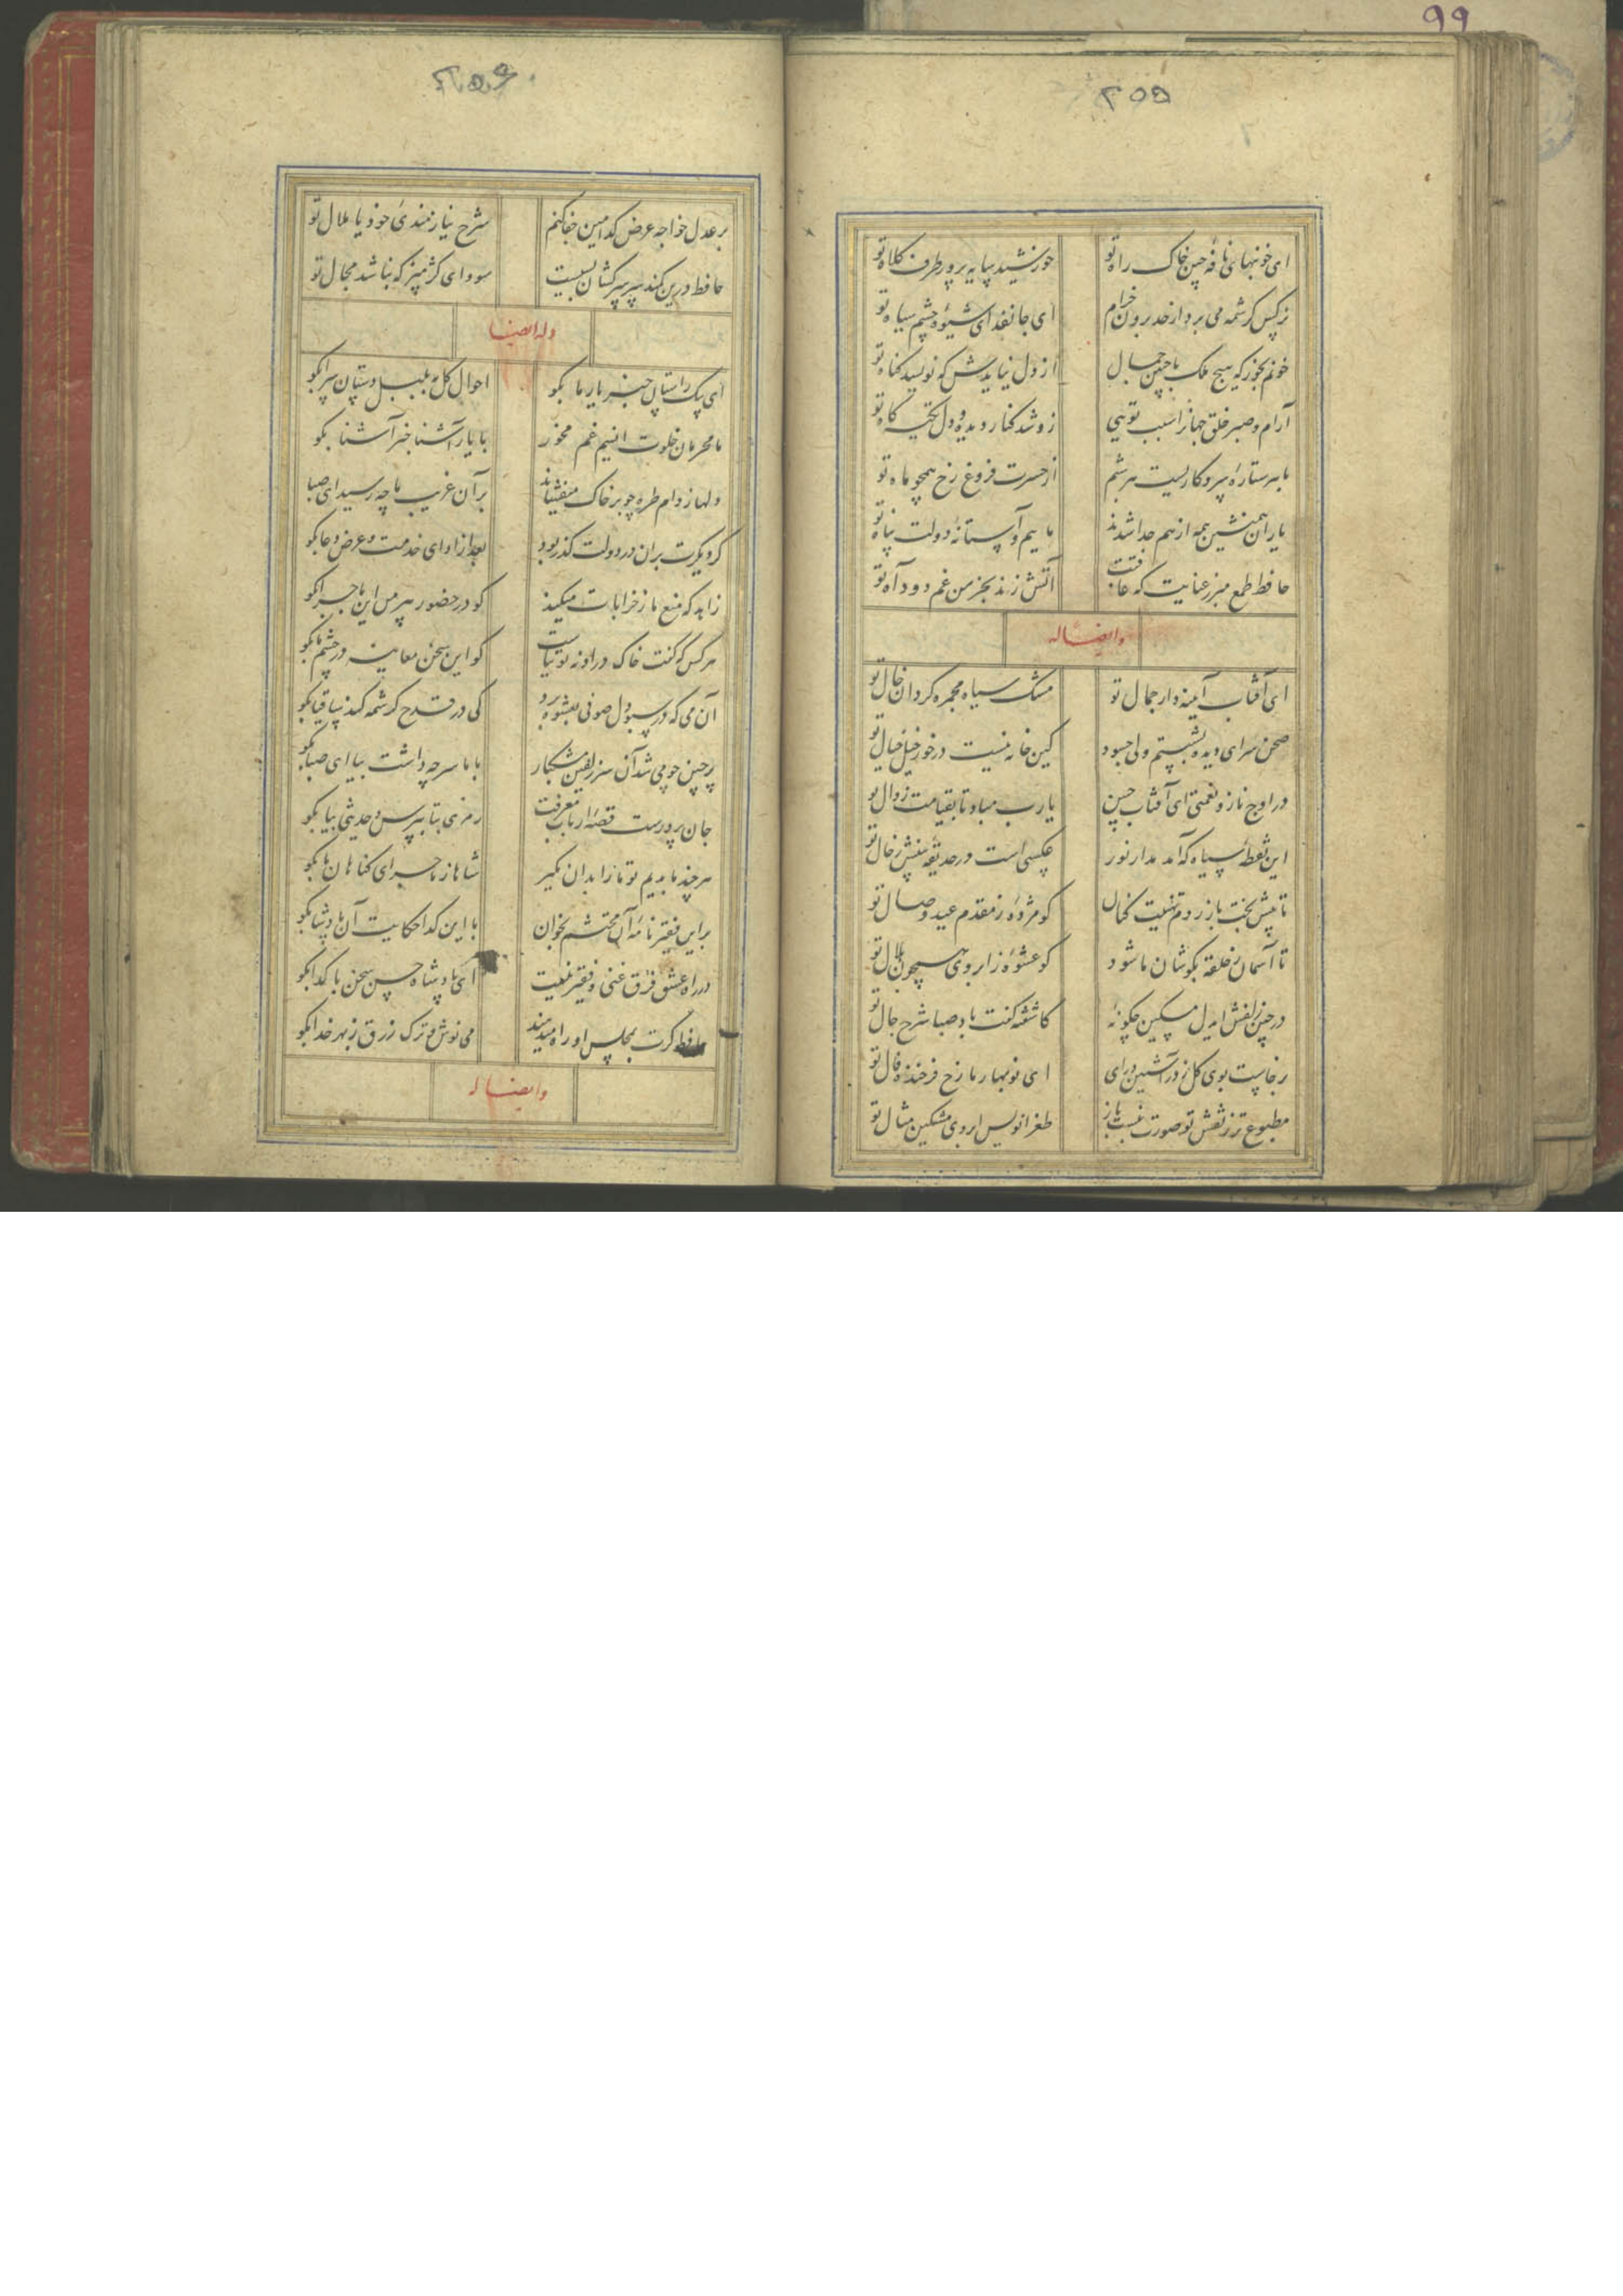 ۹۹
۲۵۵
ای خونبهای نافه چین خاک راه تو خورشید سایه پرور طرف کلاه تو
نرگس کرشمه می برد از حد برون خرام ای جان فدای شیوه چشم سیاه تو
خونم بخور که هیچ ملک با چنین جمال از دل نیایدش که نویسد گناه تو
آرام و صبر خلق جهانرا سبب تویی زو شد کنار دیده و دل تکیه گاه تو
با هر ستاره سر و کاریست هر شبم از حسرت فروغ رخ همچو ماه تو
یاران همنشین همه از هم جدا شدند ماییم و آستانه دولت پناه تو
حافظ طمع مبر ز عنایت که عاقبت آتش زند بخرمن غم دود آه تو
وایضاله
ای آفتاب آینه دار جمال تو مشک سیاه مجمره گردان خال تو
صحن سرای دیده بشستیم ولی چسود کین خانه نیست در خور خیل خیال تو
در اوج ناز و نعمتی ای آفتاب حسن یارب مباد تا بقیامت زوال تو
این نقطه سیاه که آمد مدار نور عکسی است در حدیقه بینش ز خال تو
تا پیش بخت باز روم تهنیت کنان کو مژده ز مقدم عید وصال تو
تا آسمان ز حلقه بگوشان ما شود کو عشوه ز ابروی همچون هلال تو
در چین زلفش ایدل مسکین چگونه کاشفته گفت باد صبا شرح حال تو
برخاست بوی گل ز در آشتی درای ای نوبهار ما رخ فرخنده فال تو
مطبوع تر ز نقش تو صورت نبست باز طغرا نویس ابروی مشکین مثال تو
۲۵۶
بر عدل خواجه عرض کدامین جفا کنم شرح نیازمندی خود یا ملال تو
حافظ درین کمند سر سرکشان بسیست سودای کژ مپز که نباشد مجال تو
وله ایضا
ای پیک راستان خبر یار ما بگو احوال گل به بلبل دستان سرا بگو
ما محرمان خلوت انسیم غم مخور با یار آشنا خبر آشنا بگو
دلها ز دام طره چو بر خاک میفشاند بر آن غریب ما چه رسید ای صبا بگو
گر دیگرت بران در دولت گذر بود بعد از ادای خدمت و عرض دعا بگو
زاهد که منع ما ز خرابات میکند گو در حضور پیر من این ماجرا بگو
هر کس که گفت خاک در او نه توتیاست گو این سخن معاینه در چشم ما بگو
آن می که در سبو دل صوفی بعشوه برد کی در قدح کرشمه کند ساقیا بگو
بر چین چو می شد آن سر زلفین مشکبار با ما سر چه داشت بیا ای صبا بگو
جان پرورست قصه ارباب معرفت رمزی بتا بپرس و حدیثی بیا بگو
هر چند ما بدیم تو ما را بدان مگیر شاها ز ماجرای گناهان ما بگو
براین فقیر نامه آن محتشم بخوان با این گدا حکایت آن پادشا بگو
در راه عشق فرق غنی و فقیر نیست ای پادشاه حسن سخن با گدا بگو
حافظ گرت بمجلس او راه میدهند می نوش و ترک زرق ز بهر خدا بگو
وایضاله